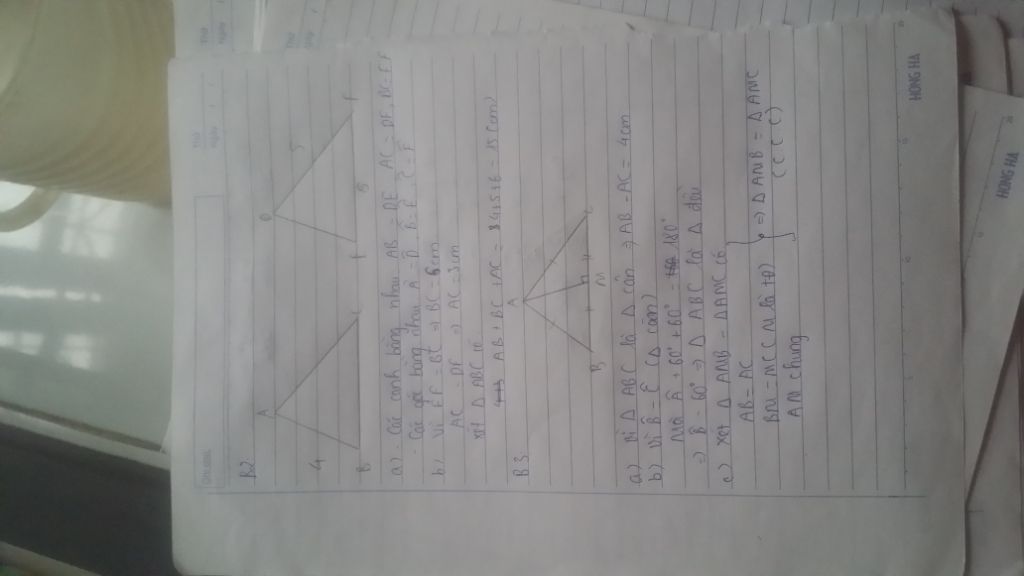 B2
A
4
B
C
D
5
6
F
a) - Các cạnh bằng nhau AB = DE, AC = DF, BC = EF
- Các góc bằng nhau Â = D̂, B̂ = Ê, Ĉ = F̂
b) Vì EF = BC => BC = 6cm
AC = DF => AC =
xét Δ ABC có
AB + BC + AC = 4+5+6 = 15 (cm)
B3
A
B
M
C
a) Vì Δ ABC là Δ cân => AB = AC = 4cm
b) Vì B̂ = Ĉ (Δ cân)
Mà Â + 60° + 60° = 180°
=> B = 60° => Δ ABC là Δ đều
c) xét Δ AMB = Δ AMC có
AB = AC
BM = MC (M là tđ)
AM chung
=> Δ AMB = Δ AMC
(C C C)
HONG HA
HONG HA
Thứ
Ngày
Thứ
Ngày